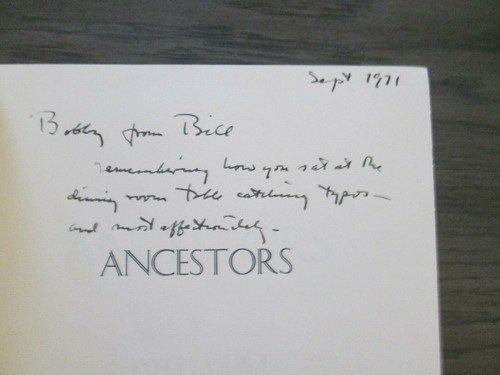 Sept 1971
Bobby from Bill
remembering how you sat at the
dining room table catching typos—
and most affectionately—
ANCESTORS